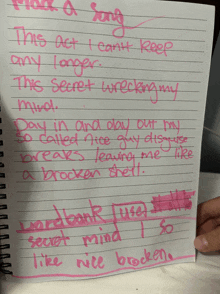 Make a Song
This act I can't keep
any longer.
This secret wrecking my
mind.
Day in and day out my
so called nice guy disguise
breaks leaving me like
a brocken shell.
word bank use
secret mind I so
like nice brocken.